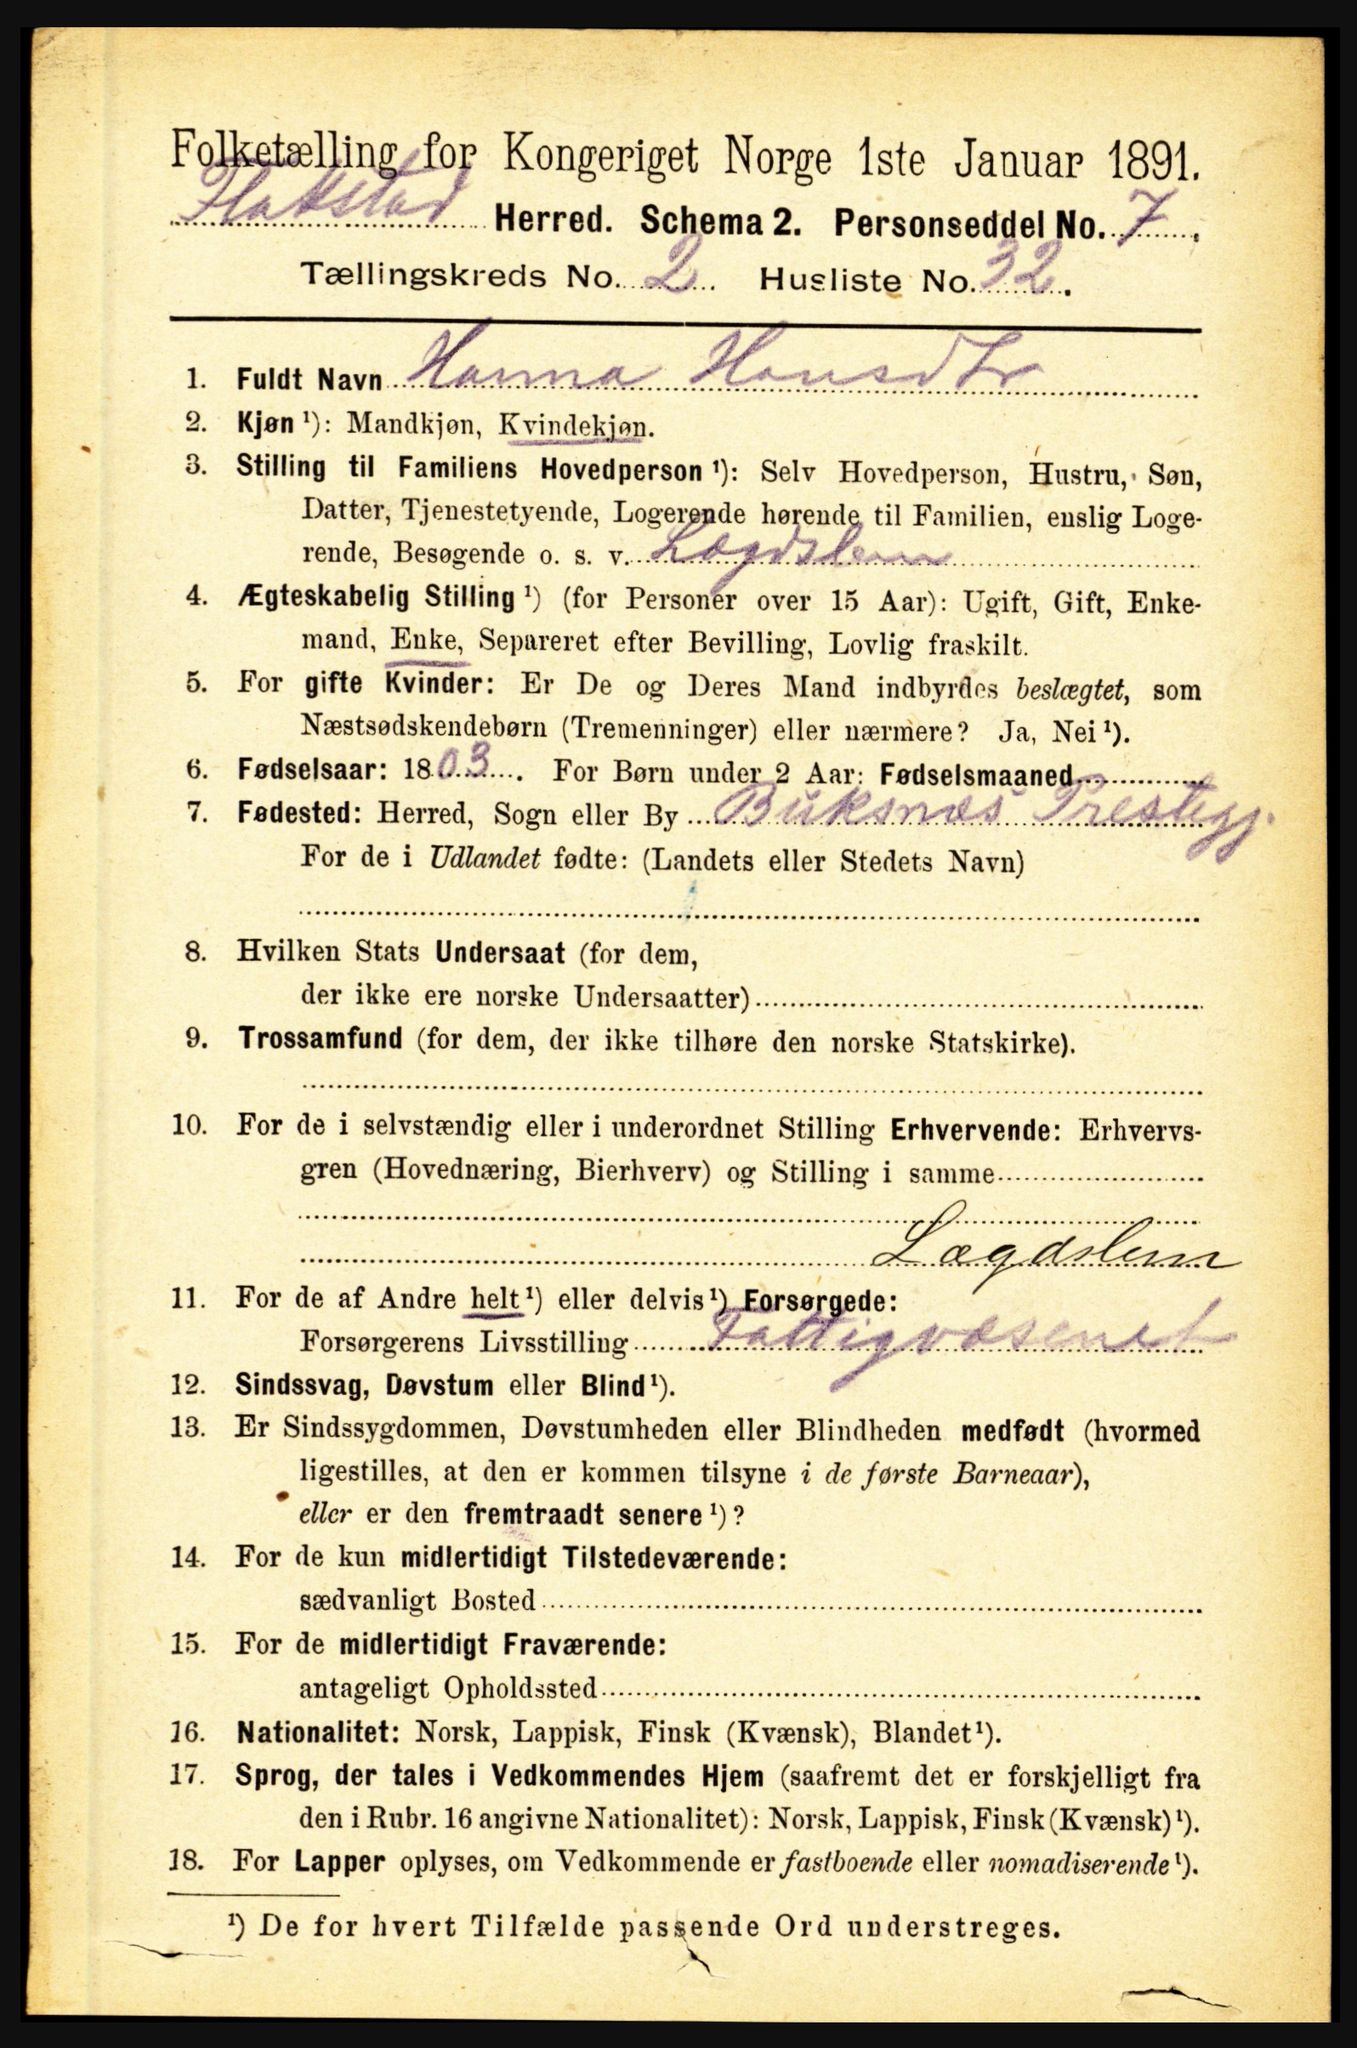 Folketælling for Kongeriget Norge 1ste Januar 1891.
Flakstad Herred. Schema 2. Personseddel No. 7.
Tællingskreds No. 2. Husliste No. 32.
1. Fuldt Navn Hanna Hansdtr
2. Kjøn ¹): Mandkjøn, Kvindekjøn.
3. Stilling til Familiens Hovedperson ¹): Selv Hovedperson, Hustru, Søn,
Datter, Tjenestetyende, Logerende hørende til Familien, enslig Loge-
rende, Besøgende o. s. v. Lægdslem
4. Ægteskabelig Stilling ¹) (for Personer over 15 Aar): Ugift, Gift, Enke-
mand, Enke, Separeret efter Bevilling, Lovlig fraskilt.
5. For gifte Kvinder: Er De og Deres Mand indbyrdes beslægtet, som
Næstsødskendebørn (Tremenninger) eller nærmere? Ja, Nei ¹).
6. Fødselsaar: 1803. For Børn under 2 Aar: Fødselsmaaned
7. Fødested: Herred, Sogn eller By Buksnæs Prestegj.
For de i Udlandet fødte: (Landets eller Stedets Navn)
8. Hvilken Stats Undersaat (for dem,
der ikke ere norske Undersaatter)
9. Trossamfund (for dem, der ikke tilhøre den norske Statskirke).
10. For de i selvstændig eller i underordnet Stilling Erhvervende: Erhvervs-
gren (Hovednæring, Bierhverv) og Stilling i samme
Lægdslem
11. For de af Andre helt ¹) eller delvis ¹) Forsørgede:
Forsørgerens Livsstilling Fattigvæsenet
12. Sindssvag, Døvstum eller Blind ¹).
13. Er Sindssygdommen, Døvstumheden eller Blindheden medfødt (hvormed
ligestilles, at den er kommen tilsyne i de første Barneaar),
eller er den fremtraadt senere ¹)?
14. For de kun midlertidigt Tilstedeværende:
sædvanligt Bosted
15. For de midlertidigt Fraværende:
antageligt Opholdssted
16. Nationalitet: Norsk, Lappisk, Finsk (Kvænsk), Blandet ¹).
17. Sprog, der tales i Vedkommendes Hjem (saafremt det er forskjelligt fra
den i Rubr. 16 angivne Nationalitet): Norsk, Lappisk, Finsk (Kvænsk) ¹).
18. For Lapper oplyses, om Vedkommende er fastboende eller nomadiserende ¹).
¹) De for hvert Tilfælde passende Ord understreges.